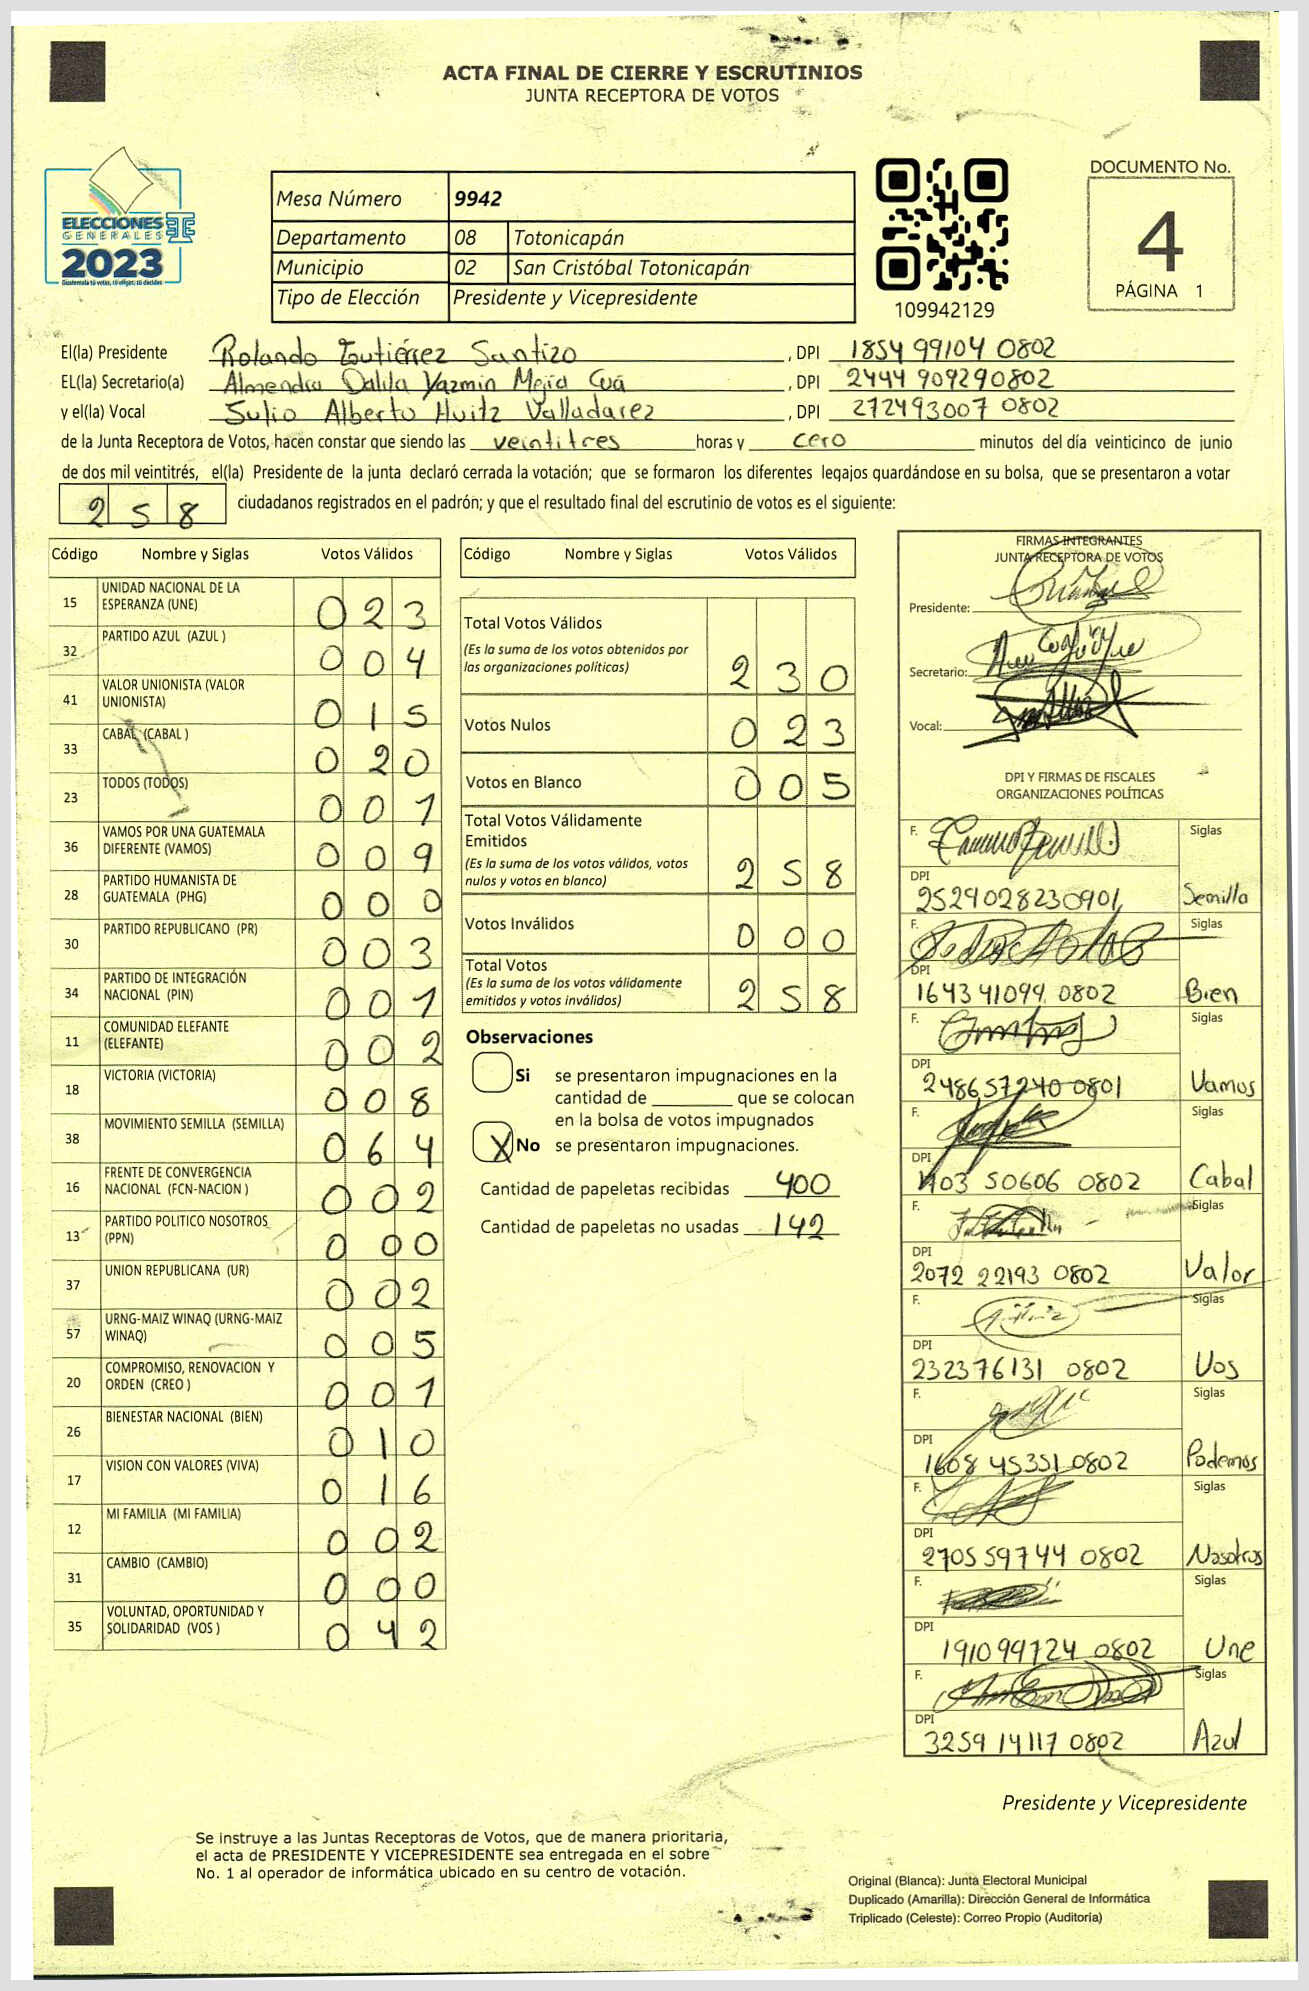 ACTA FINAL DE CIERRE Y ESCRUTINIOS
JUNTA RECEPTORA DE VOTOS
ELECCIONES
GENERALES
2023
Guatemala tú votas, tú eliges, tú decides
Mesa Número 9942
Departamento 08 Totonicapán
Municipio 02 San Cristóbal Totonicapán
Tipo de Elección Presidente y Vicepresidente
109942129
DOCUMENTO No.
4
PÁGINA 1
El(la) Presidente Rolando Gutiérrez Santizo, DPI 1854 99104 0802
EL(la) Secretario(a) Almendra Dalila Yazmin Mejía Cuá, DPI 2444 90929 0802
y el(la) Vocal Julio Alberto Huitz Valladarez, DPI 272493007 0802
de la Junta Receptora de Votos, hacen constar que siendo las veintitres horas y cero minutos del día veinticinco de junio
de dos mil veintitrés, el(la) Presidente de la junta declaró cerrada la votación; que se formaron los diferentes legajos guardándose en su bolsa, que se presentaron a votar
258 ciudadanos registrados en el padrón; y que el resultado final del escrutinio de votos es el siguiente:
Código Nombre y Siglas Votos Válidos
15 UNIDAD NACIONAL DE LA ESPERANZA (UNE) 023
32 PARTIDO AZUL (AZUL ) 004
41 VALOR UNIONISTA (VALOR UNIONISTA) 015
33 CABAL (CABAL ) 020
23 TODOS (TODOS) 001
36 VAMOS POR UNA GUATEMALA DIFERENTE (VAMOS) 009
28 PARTIDO HUMANISTA DE GUATEMALA (PHG) 000
30 PARTIDO REPUBLICANO (PR) 003
34 PARTIDO DE INTEGRACIÓN NACIONAL (PIN) 001
11 COMUNIDAD ELEFANTE (ELEFANTE) 002
18 VICTORIA (VICTORIA) 008
38 MOVIMIENTO SEMILLA (SEMILLA) 064
16 FRENTE DE CONVERGENCIA NACIONAL (FCN-NACION ) 002
13 PARTIDO POLITICO NOSOTROS (PPN) 000
37 UNION REPUBLICANA (UR) 002
57 URNG-MAIZ WINAQ (URNG-MAIZ WINAQ) 005
20 COMPROMISO, RENOVACION Y ORDEN (CREO ) 001
26 BIENESTAR NACIONAL (BIEN) 010
17 VISION CON VALORES (VIVA) 016
12 MI FAMILIA (MI FAMILIA) 002
31 CAMBIO (CAMBIO) 000
35 VOLUNTAD, OPORTUNIDAD Y SOLIDARIDAD (VOS ) 042
Código Nombre y Siglas Votos Válidos
Total Votos Válidos 230
(Es la suma de los votos obtenidos por
las organizaciones políticas)
Votos Nulos 023
Votos en Blanco 005
Total Votos Válidamente
Emitidos 258
(Es la suma de los votos válidos, votos
nulos y votos en blanco)
Votos Inválidos 000
Total Votos 258
(Es la suma de los votos válidamente
emitidos y votos inválidos)
Observaciones
Si se presentaron impugnaciones en la
cantidad de ________ que se colocan
en la bolsa de votos impugnados
X No se presentaron impugnaciones.
Cantidad de papeletas recibidas 400
Cantidad de papeletas no usadas 142
FIRMAS INTEGRANTES
JUNTA RECEPTORA DE VOTOS
Presidente:
Secretario:
Vocal:
DPI Y FIRMAS DE FISCALES
ORGANIZACIONES POLÍTICAS
F. Siglas
DPI
2529028230901 Semilla
F. Siglas
DPI
1643 41094 0802 Bien
F. Siglas
DPI
248657240 0801 Vamos
F. Siglas
DPI
1403 50606 0802 Cabal
F. Siglas
DPI
2072 22193 0802 Valor
F. Siglas
DPI
232376131 0802 Vos
F. Siglas
DPI
1608 45351 0802 Podemos
F. Siglas
DPI
270559744 0802 Nosotros
F. Siglas
DPI
191099724 0802 Une
F. Siglas
DPI
3259 14117 0802 Azul
Presidente y Vicepresidente
Se instruye a las Juntas Receptoras de Votos, que de manera prioritaria,
el acta de PRESIDENTE Y VICEPRESIDENTE sea entregada en el sobre
No. 1 al operador de informática ubicado en su centro de votación.
Original (Blanca): Junta Electoral Municipal
Duplicado (Amarilla): Dirección General de Informática
Triplicado (Celeste): Correo Propio (Auditoría)